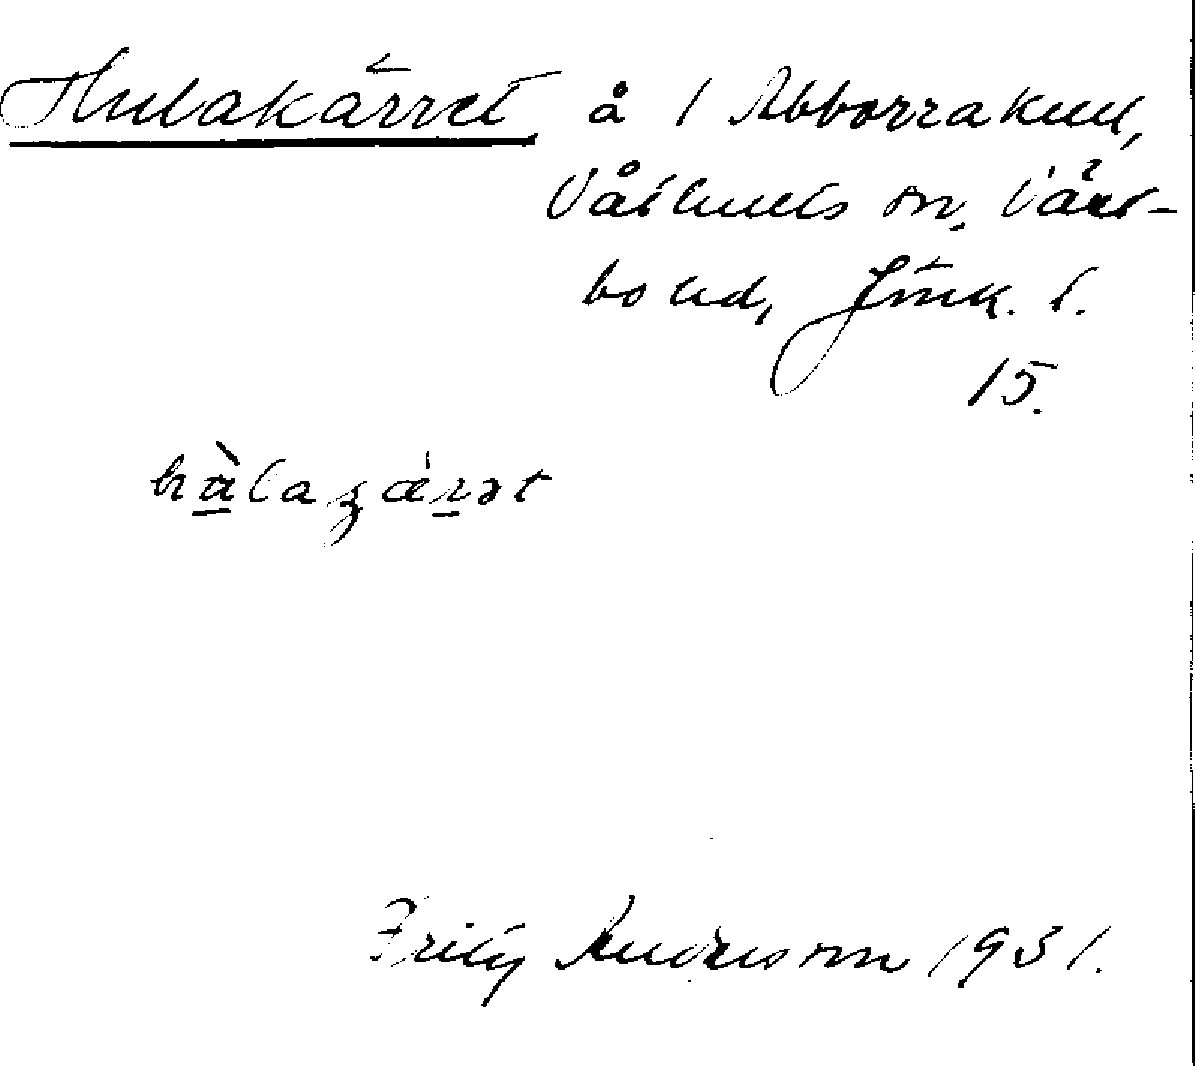 Hulakärret å 1 Abborrakull,
Våthults sn, Väst-
bo hd, Jönk. l.
15.
hàlaʒærət
Fritz Andersson 1931.